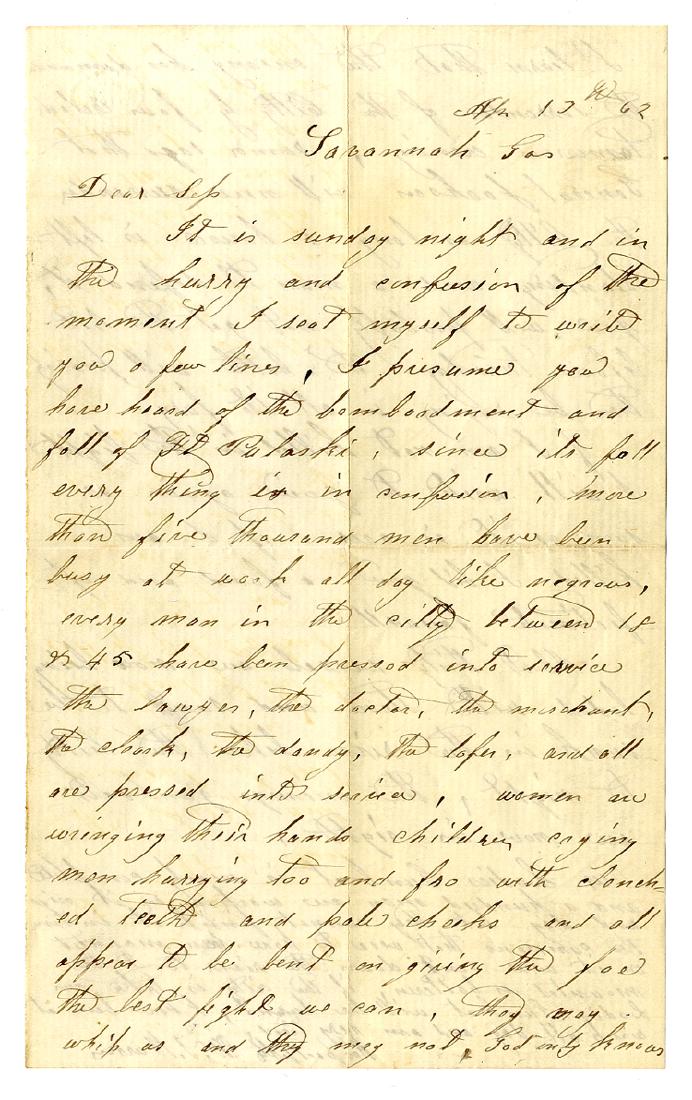 Ap 13th 62
Savannah Gas
Dear Sep
It is sunday night and in
the hurry and confusion of the
moment I seat myself to write
you a few lines, I presume you
have heard of the bombardment and
fall of Ft Pulaski, since its fall
every thing is in confusion, more
than five thousand men have been
busy at work all day like negroes,
every man in the citty between 18
& 45 have been pressed into service
the lawyer, the doctor, the merchant,
the clerk, the dandy, the lofer, and all
are pressed into service, women are
wringing their hands children crying
men hurrying too and fro with clench-
ed teeth and pale cheeks and all
appear to be bent on giving the foe
the best fight we can, they may
whip us and they may not, God only knows